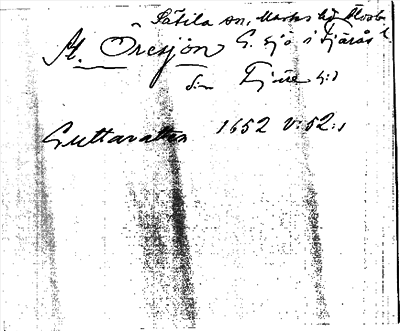 Sätila sn, Marks hd Älvsb. l.
St. Öresjön G. sjö i Fjärås
sn Fjäre hd
Guttavattn 1652 V:52:1